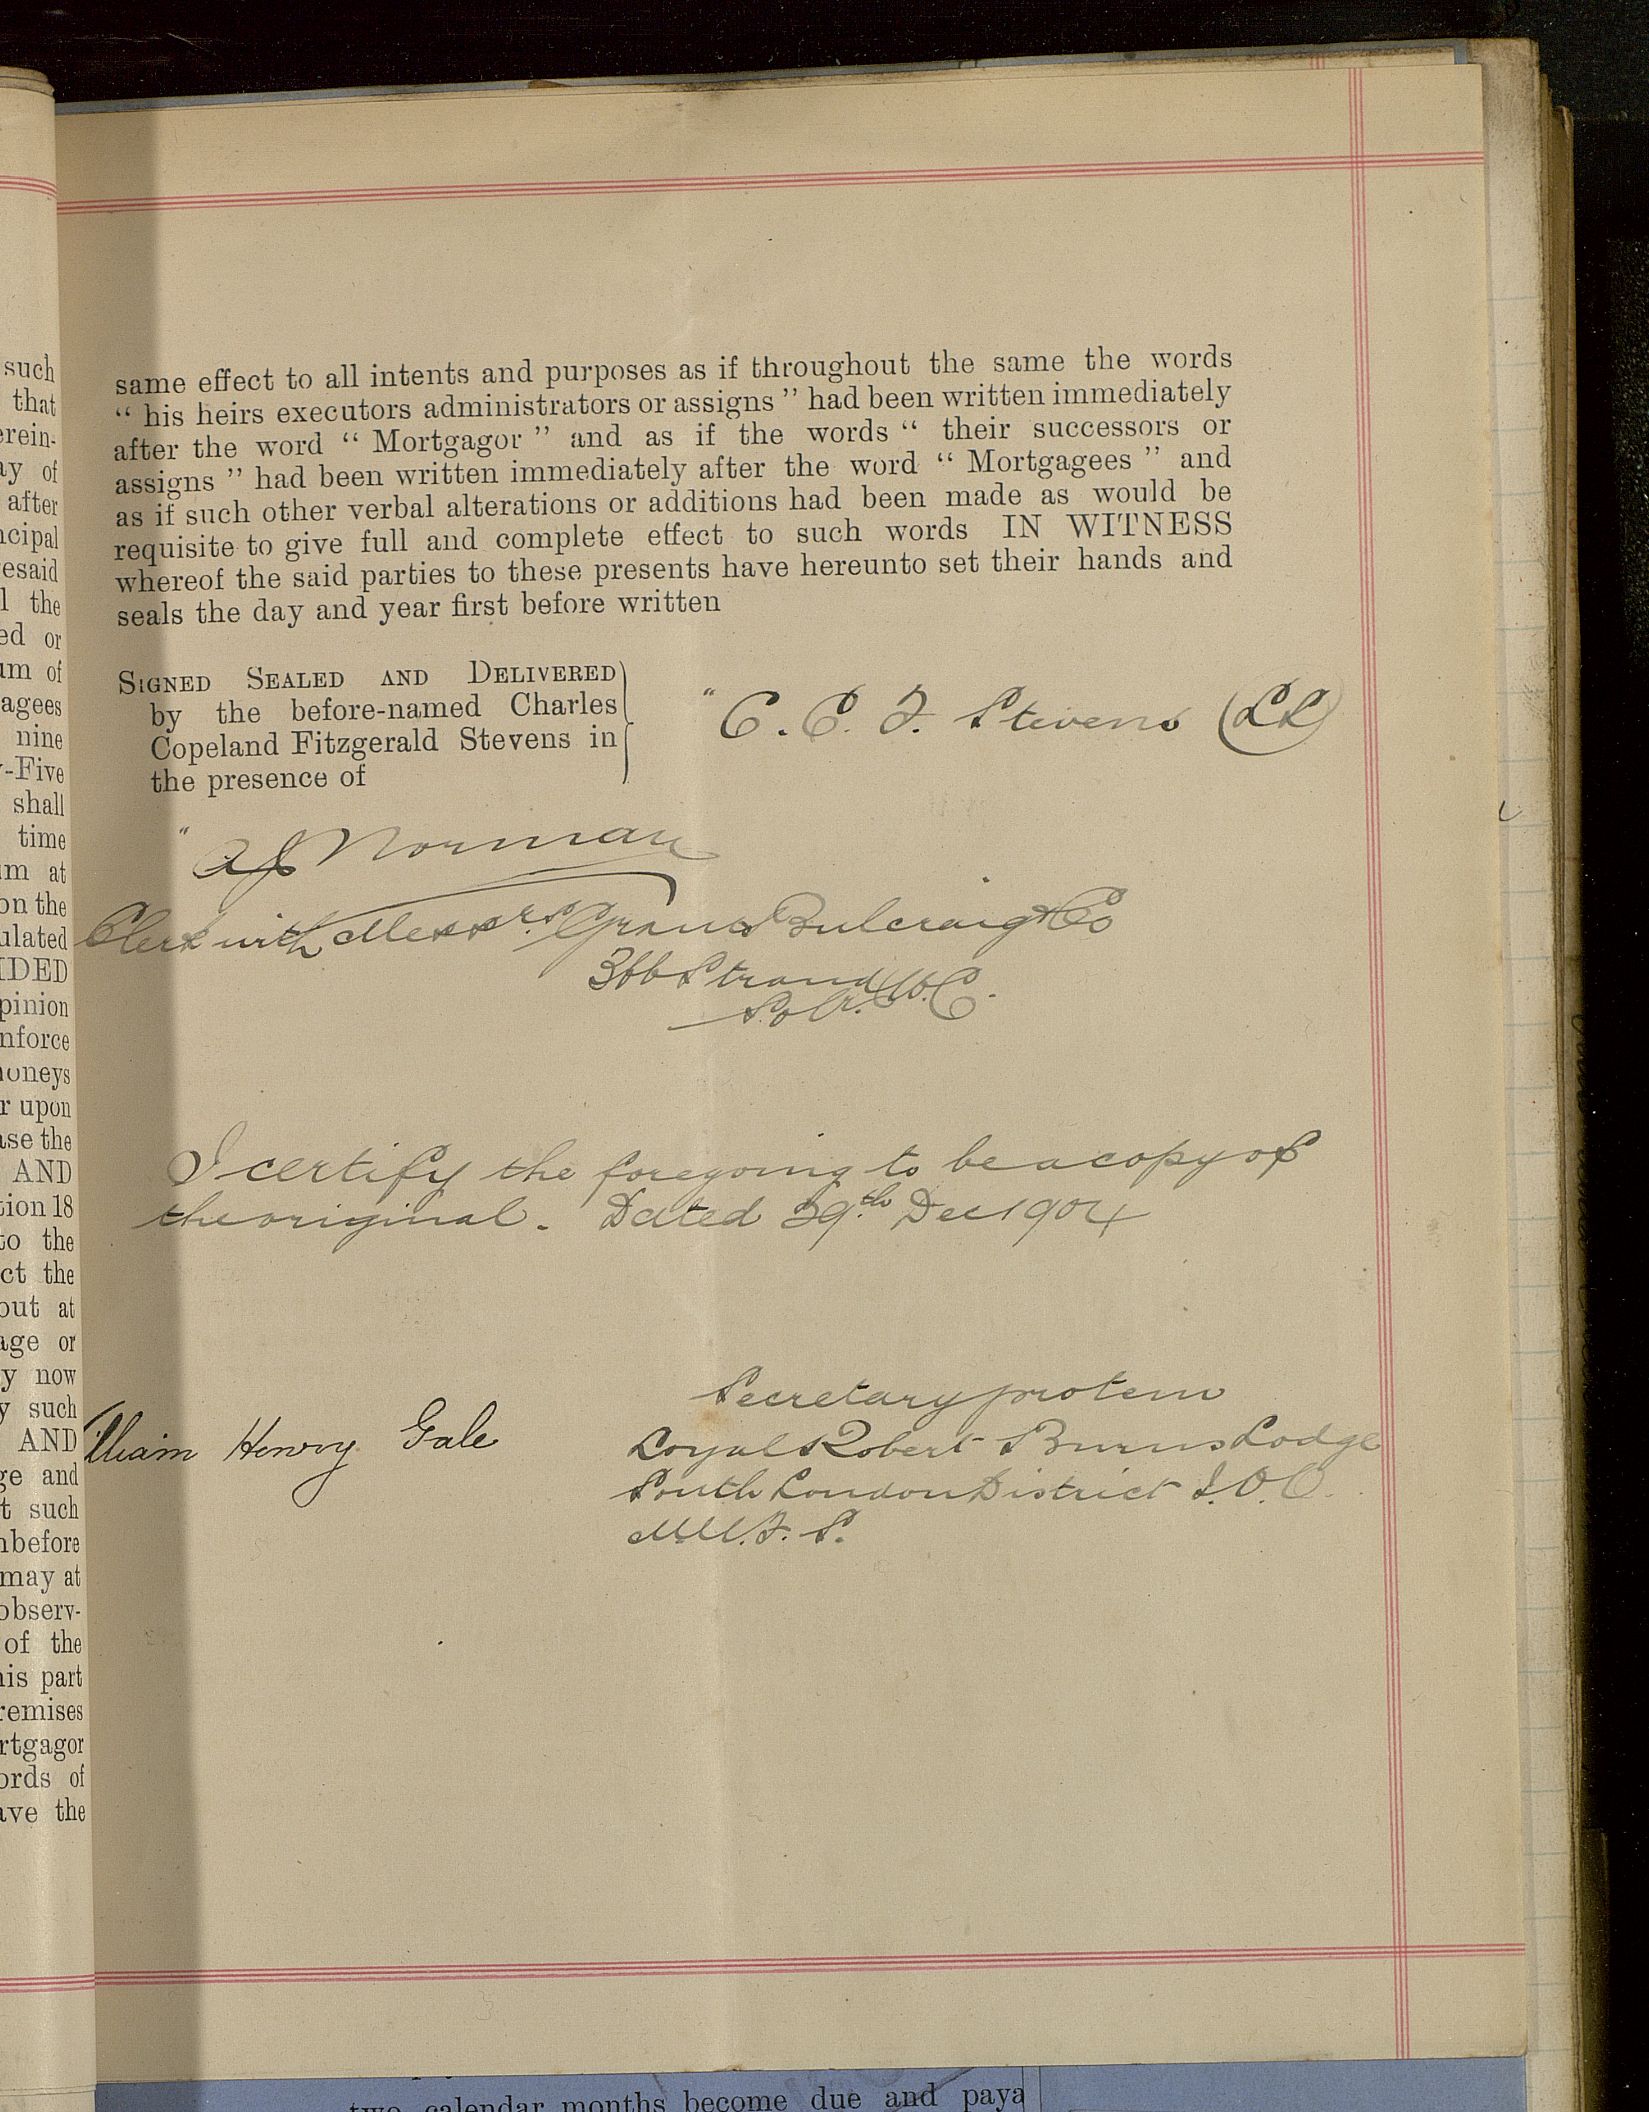 such
that
erein-
ay of
after
ncipal
esaid
l the
ed or
um of
agees
nine
y-Five
shall
time
um at
on the
ulated
IDED
pinion
nforce
noneys
r upon
ase the
AND
tion 18
to the
ct the
out at
age or
y now
y such
AND
ge and
t such
nbefore
may at
observ-
of the
his part
remises
rtgagor
ords of
ave the
same effect to all intents and purposes as if throughout the same the words
“ his heirs executors administrators or assigns ” had been written immediately
after the word “ Mortgagor ” and as if the words “ their successors or
assigns ” had been written immediately after the word “ Mortgagees ” and
as if such other verbal alterations or additions had been made as would be
requisite to give full and complete effect to such words IN WITNESS
whereof the said parties to these presents have hereunto set their hands and
seals the day and year first before written
SIGNED SEALED AND DELIVERED
by the before-named Charles
Copeland Fitzgerald Stevens in
the presence of
" C. C. F. Stevens (LS)
" A J Norman
Clerk with Messrs. Bulcraig & Co
366 Strand W.C.
Solrs.
I certify the foregoing to be a copy of
the original. Dated 29th Dec 1904
William Henry Gale
Secretary protem
Loyal Robert Burns Lodge
South London District I.O.O.
M.U.F.S.
two calendar months become due and paya